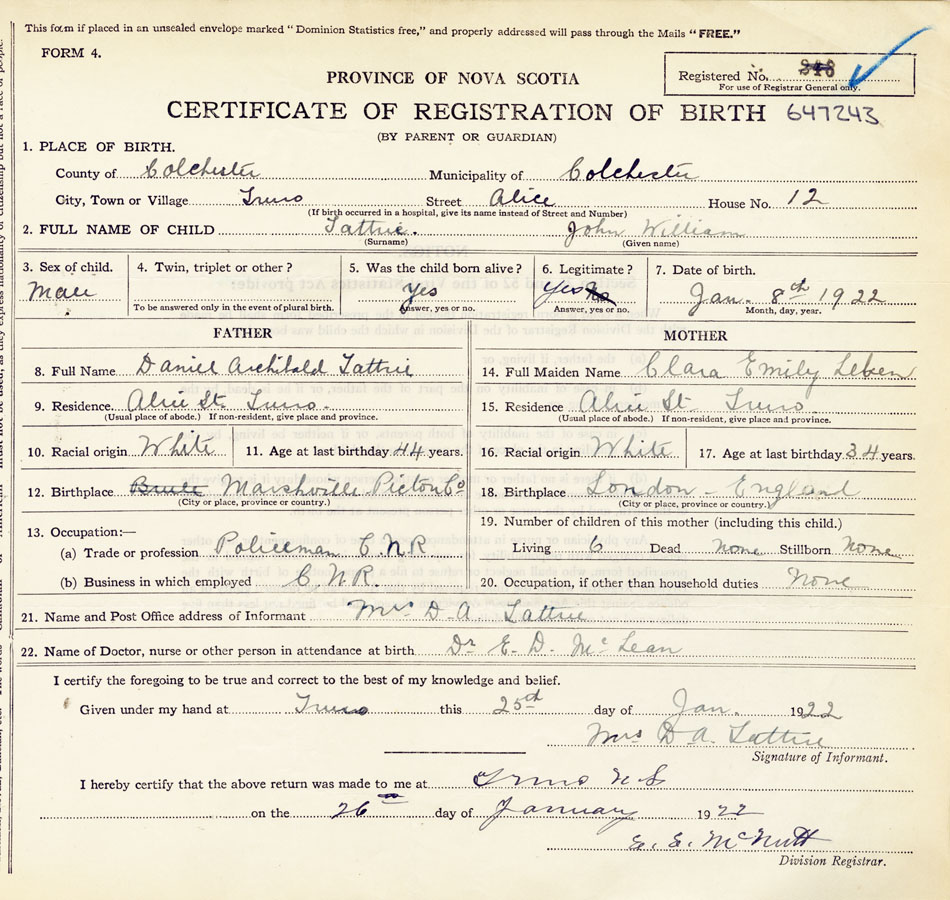 This form if placed in an unsealed envelope marked "Dominion Statistics free," and properly addressed will pass through the Mails "FREE."
FORM 4.
Registered No.
For use of Registrar General only.
PROVINCE OF NOVA SCOTIA
CERTIFICATE OF REGISTRATION OF BIRTH 647243
(BY PARENT OR GUARDIAN)
1. PLACE OF BIRTH.
County of Colchester Municipality of Colchester
City, Town or Village Truro Street Alice House No. 12
(If birth occurred in a hospital, give its name instead of Street and Number)
2. FULL NAME OF CHILD Tattrie. John William
(Surname) (Given name)
3. Sex of child. 4. Twin, triplet or other? 5. Was the child born alive? 6. Legitimate? 7. Date of birth.
Male Yes Yes No Jan. 8th 1922
To be answered only in the event of plural birth. Answer, yes or no. Answer, yes or no. Month, day, year.
FATHER MOTHER
8. Full Name Daniel Archibald Tattrie 14. Full Maiden Name Clara Emily
9. Residence Alice St. Truro. 15. Residence Alice St Truro
(Usual place of abode.) If non-resident, give place and province. (Usual place of abode.) If non-resident, give place and province.
10. Racial origin White 11. Age at last birthday 44 years. 16. Racial origin White 17. Age at last birthday 34 years.
12. Birthplace Marshville Pictou Co 18. Birthplace London - England
(City or place, province or country.) (City or place, province or country.)
13. Occupation:— 19. Number of children of this mother (including this child.)
(a) Trade or profession Policeman C.N.R Living 6 Dead none Stillborn None
(b) Business in which employed C.N.R. 20. Occupation, if other than household duties None
21. Name and Post Office address of Informant Mrs D. A. Tattrie
22. Name of Doctor, nurse or other person in attendance at birth Dr E. D. McLean
I certify the foregoing to be true and correct to the best of my knowledge and belief.
Given under my hand at Truro this 25th day of Jan. 1922
Mrs D. A. Tattrie
Signature of Informant.
I hereby certify that the above return was made to me at Truro N S
on the 26th day of January 1922
E. E. McNutt
Division Registrar.